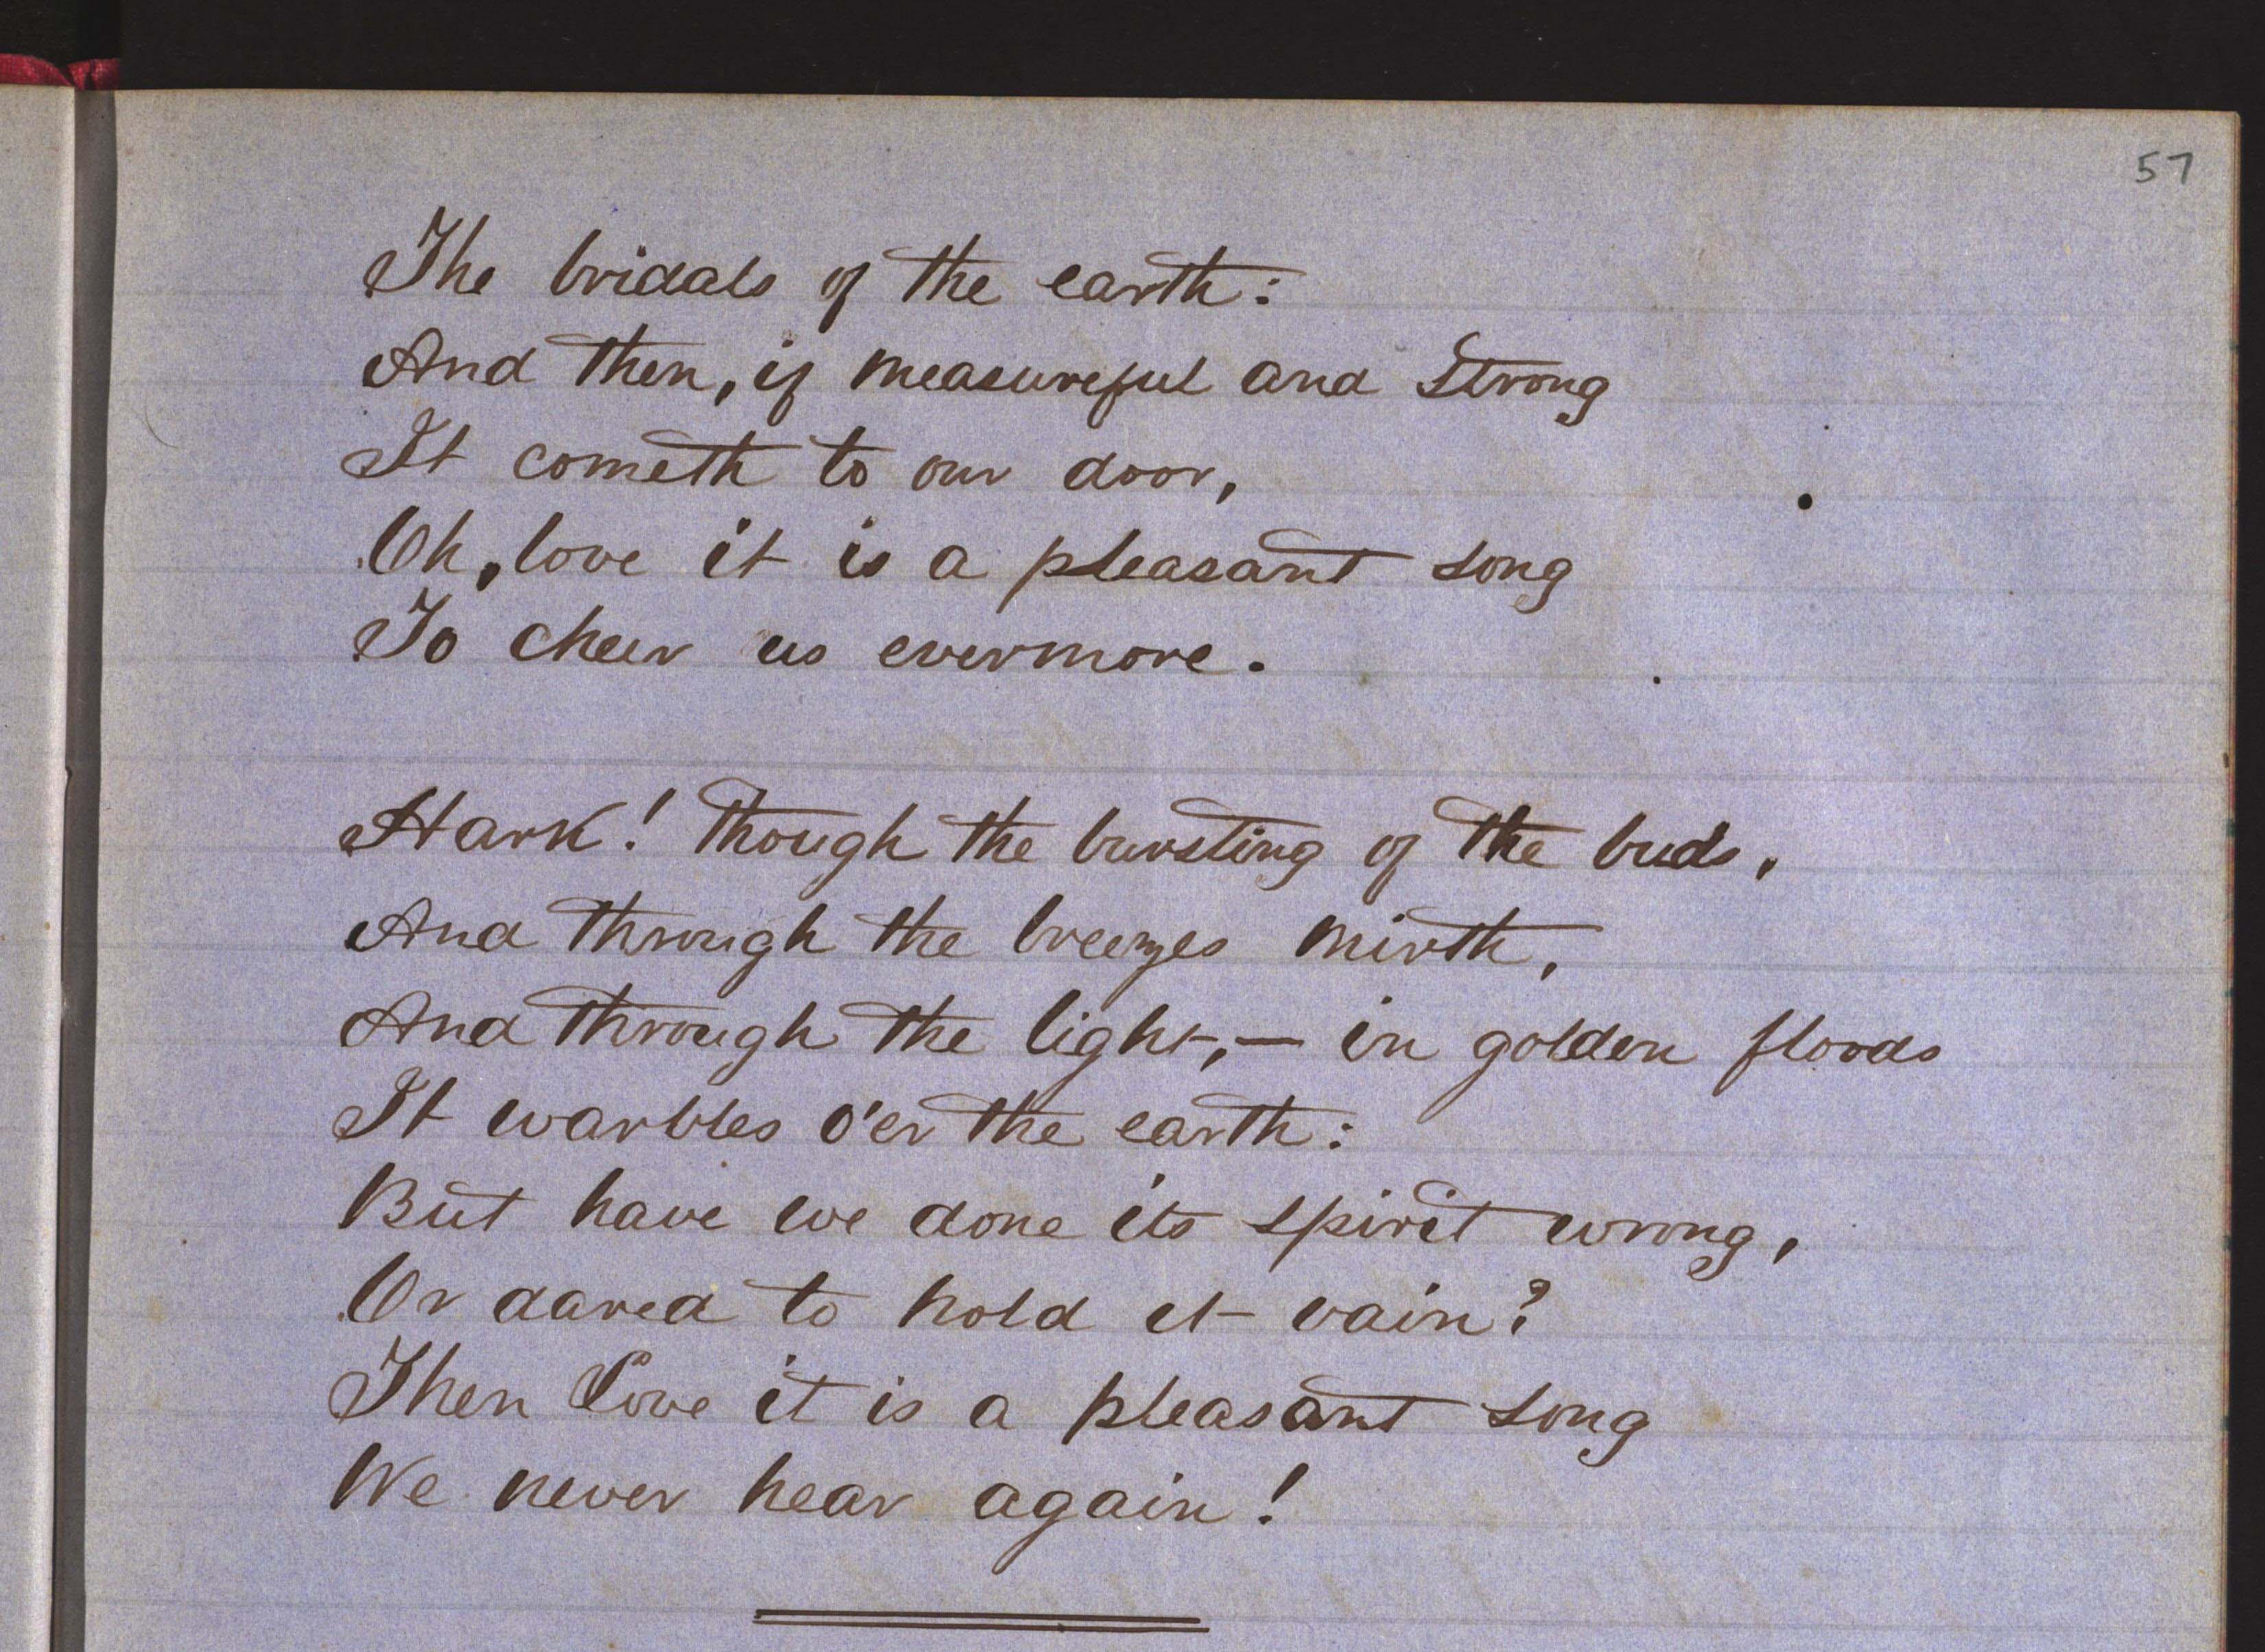 57
The bridals of the earth:
And then, if measureful and strong
It cometh to our door,
Oh, love it is a pleasant song
To cheer us evermore.
Hark! though the bursting of the buds,
And through the breezes mirth,
And through the light,— in golden floods
It warbles o'er the earth:
But have we done its spirit wrong,
Or dared to hold it vain?
Then Love it is a pleasant song
We never hear again!